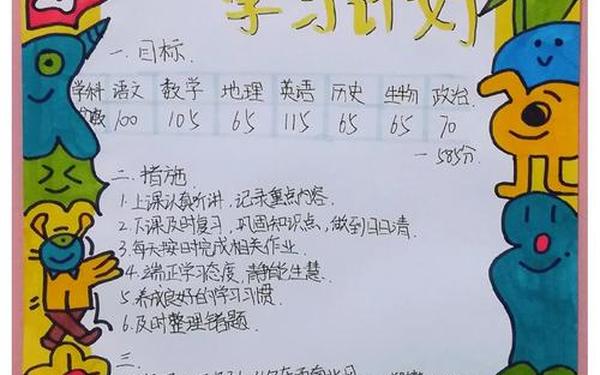 学习计划
一.目标.
学科 语文 数学 地理 英语 历史 生物 政治
分数 100 105 65 115 65 65 70
一585分.
二.措施.
1.上课认真听讲,记录重点内容.
2.下课及时复习,巩固知识点,做到日日清.
3.每天按时完成相关作业.
4.端正学习态度,静能生慧.
5.养成良好的学习习惯.
6.及时整理错题.
三.